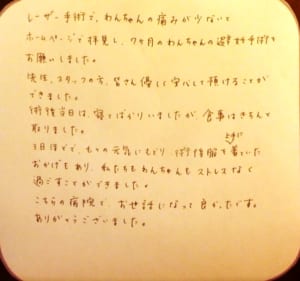 レーザー手術で、わんちゃんの痛みが少ないと
ホームページで拝見し、7ヶ月のわんちゃんの避妊手術を
お願いしました。
先生、スタッフの方、皆さん優しく安心して預けることが
できました。
術後当日は、寝てばかりいましたが、食事はきちんと
取りました。
3日ほどで、もとの元気にもどり、術後服を上手に着ていた
おかげもあり、私たちもわんちゃんもストレスなく
過ごすことができました。
こちらの病院で、お世話になって良かったです。
ありがとうございました。